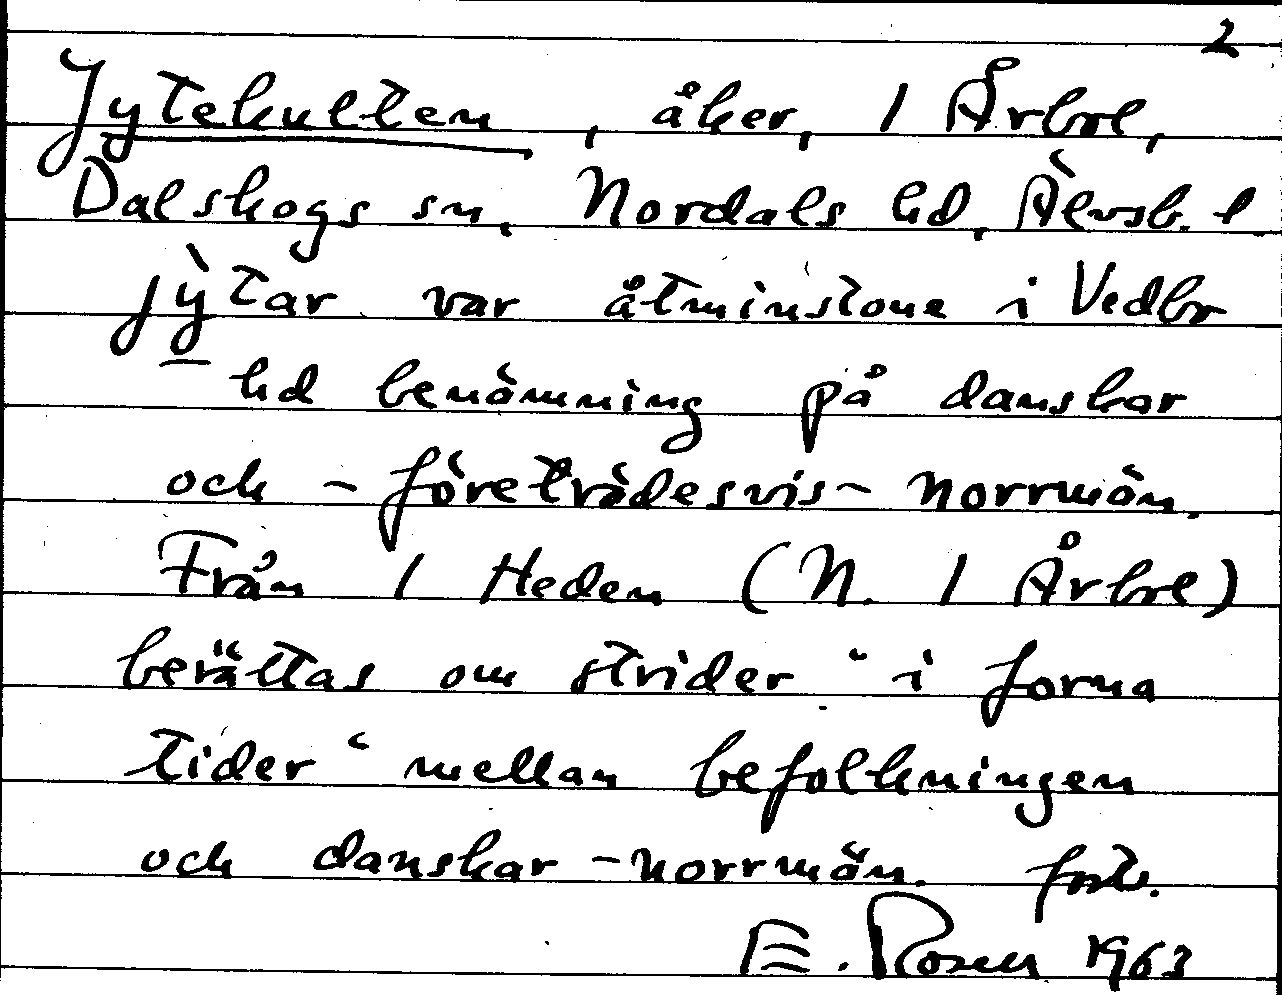 2
Jytekullen, åker, 1 Årbol,
Dalskogs sn, Nordals hd, Älvsb. l
jȳtar var åtminstone i Vedbo
hd benämning på danskar
och – företrädesvis – norrmän.
Från 1 Heden (N. 1 Årbol)
berättas om strider "i forna
tider" mellan befolkningen
och danskar – norrmän. forts.
E. Rosen 1963